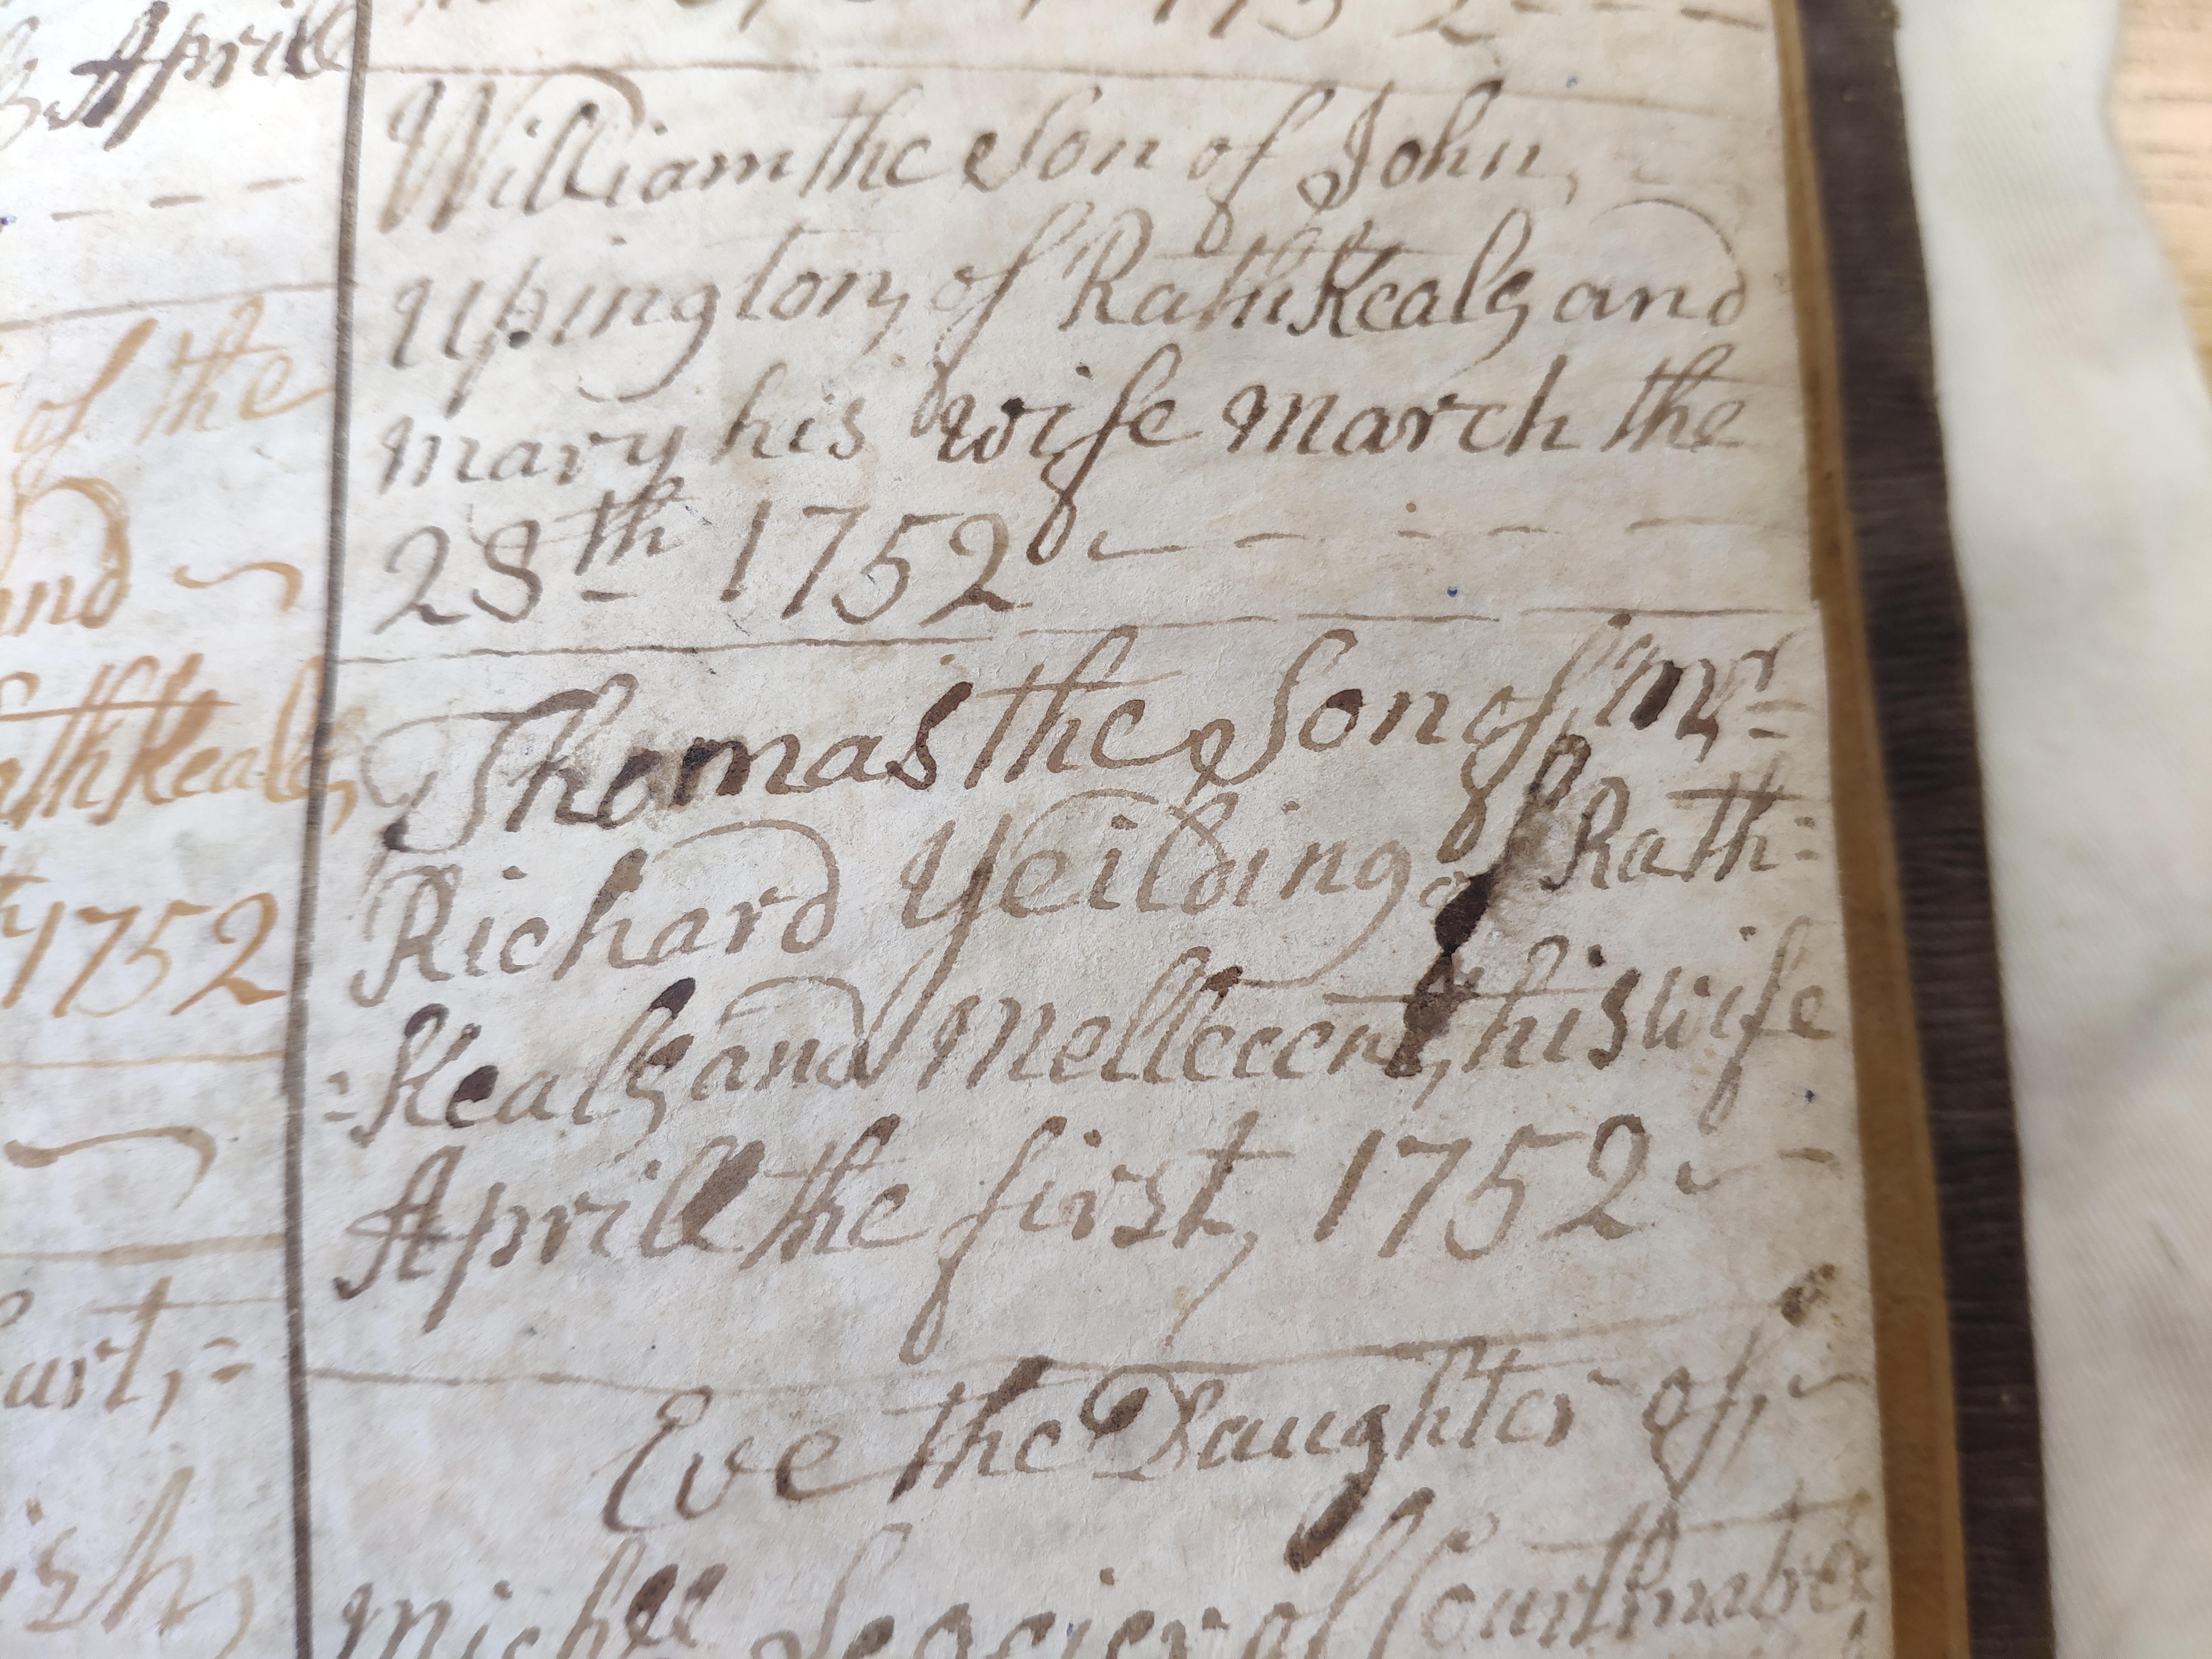 Aprill
of the
and
Rathkealy
1752
William the Son of John,
Upington, of RathKealy and
mary his wife march the
28th 1752
Thomas the Son of, mr
Richard Yeilding of Rath=
=Kealy and Mellecent, his wife
Aprill the first, 1752
Eve the Daughter of,